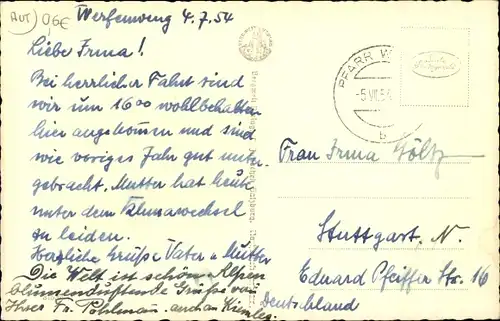 AUT 0,6€
Werfenweng 4.7.54
Liebe Irma!
Bei herrlicher Fahrt sind
wir um 16 00 wohlbehalten
hier angekommen und sind
wie voriges Jahr gut unter-
gebracht. Mutter hat heute
unter dem Klimawechsel
zu leiden.
Herzliche Grüße Vater u Mutter
Die Welt ist schön – Alpen
blumenduftende Grüße von
Ihrer Fr. Pohlman. auch an
PFARR W
-5.VII.54
b
Frau Irma Höltz
Stuttgart. N.
Eduard Pfeiffer Str. 16
Deutschland